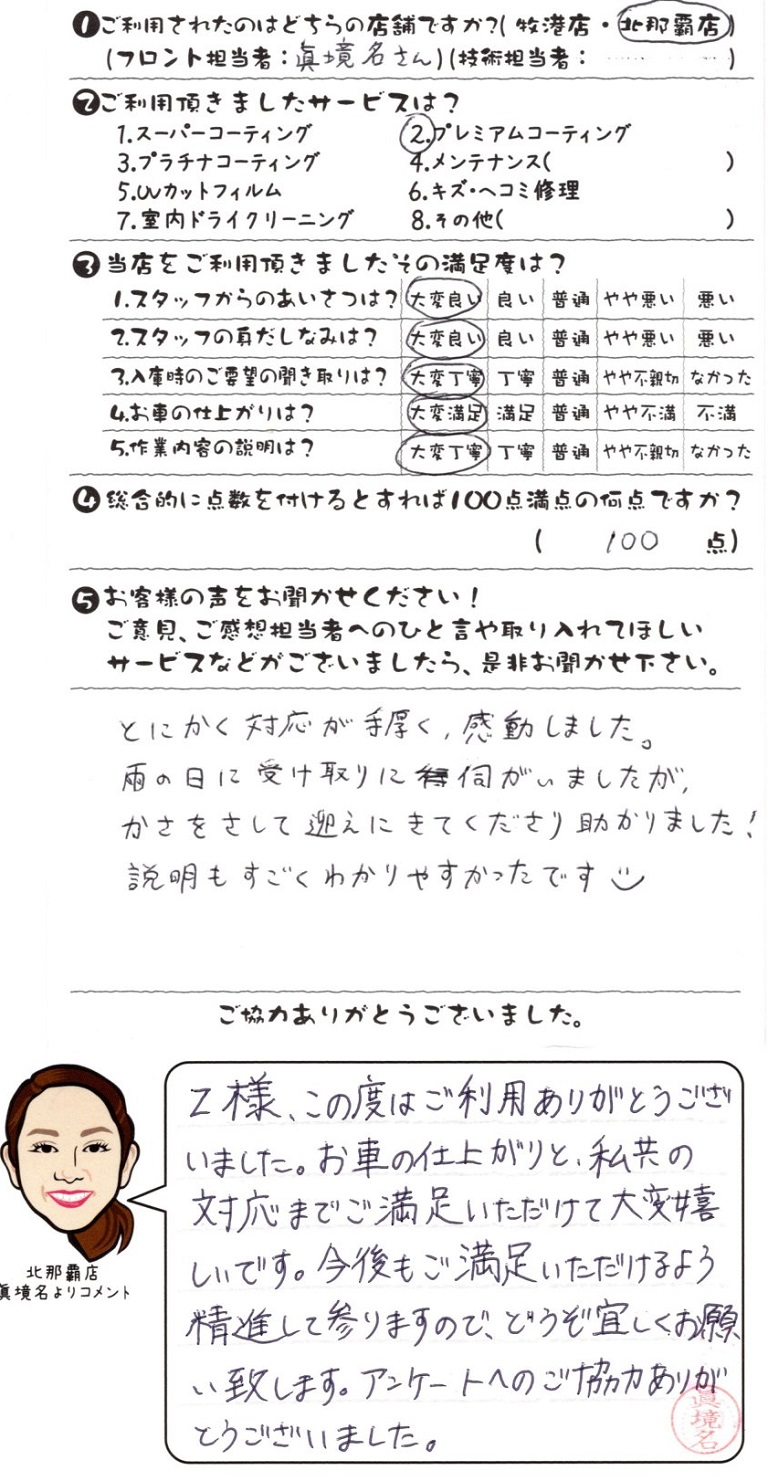 ❶ご利用されたのはどちらの店舗ですか?(牧港店・北那覇店)
(フロント担当者:眞境名さん)(技術担当者: )
❷ご利用頂きましたサービスは?
1.スーパーコーティング 2.プレミアムコーティング
3.プラチナコーティング 4.メンテナンス( )
5.UVカットフィルム 6.キズ・ヘコミ修理
7.室内ドライクリーニング 8.その他( )
❸当店をご利用頂きましたその満足度は?
1.スタッフからのあいさつは? 大変良い 良い 普通 やや悪い 悪い
2.スタッフの身だしなみは? 大変良い 良い 普通 やや悪い 悪い
3.入庫時のご要望の聞き取りは? 大変丁寧 丁寧 普通 やや不親切 なかった
4.お車の仕上がりは? 大変満足 満足 普通 やや不満 不満
5.作業内容の説明は? 大変丁寧 丁寧 普通 やや不親切 なかった
❹総合的に点数を付けるとすれば100点満点の何点ですか?
( 100 点)
❺お客様の声をお聞かせください!
ご意見、ご感想担当者へのひと言や取り入れてほしい
サービスなどがございましたら、是非お聞かせ下さい。
とにかく対応が手厚く、感動しました。
雨の日に受け取りに伺がいましたが、
かさをさして迎えにきてくださり助かりました!
説明もすごくわかりやすかったです
ご協力ありがとうございました。
Z様、この度はご利用ありがとうござ
いました。お車の仕上がりと、私共の
対応までご満足いただけて大変嬉
しいです。今後もご満足いただけるよう
精進して参りますので、どうぞ宜しくお願
い致します。アンケートへのご協力ありが
とうございました。
眞境名
北那覇店
眞境名よりコメント